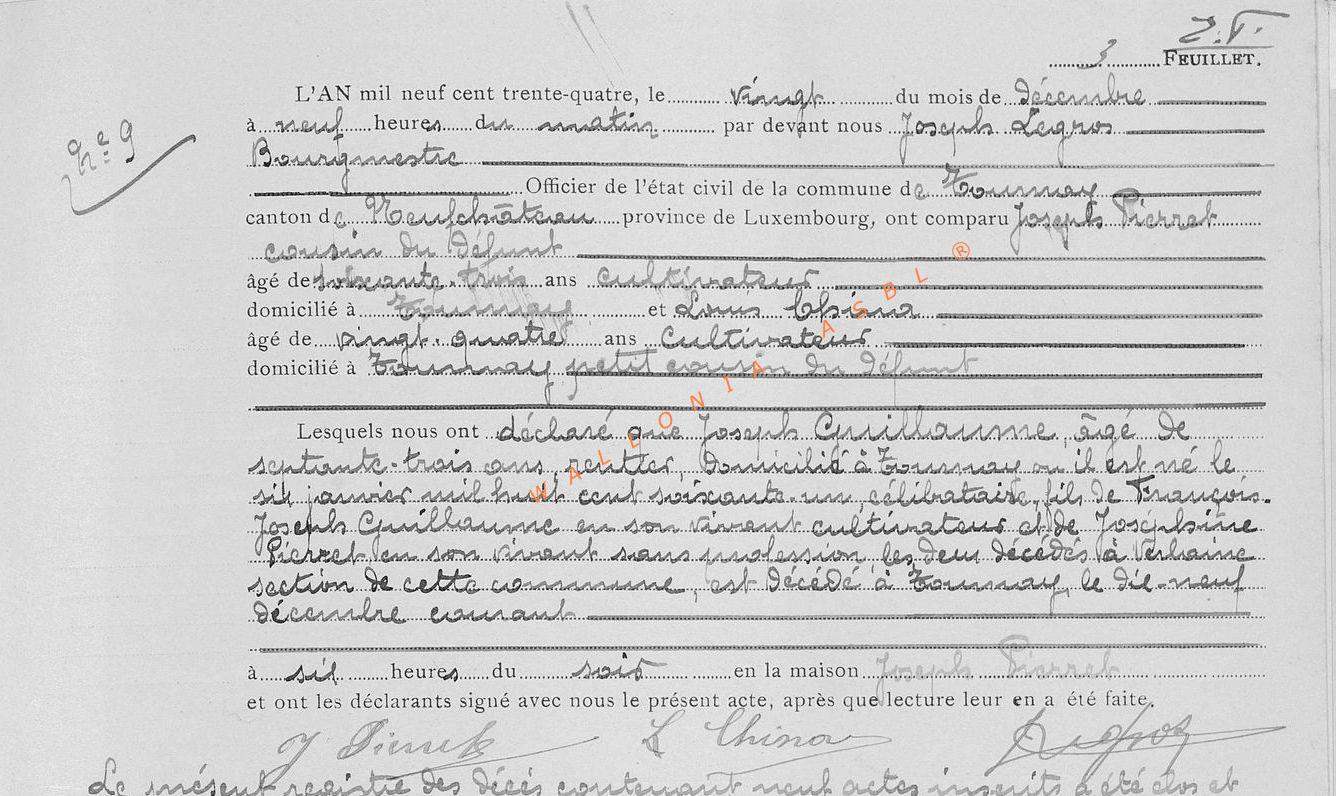 J.P.
3 FEUILLET.
L'AN mil neuf cent trente-quatre, le vingt du mois de décembre
à neuf heures du matin par devant nous Joseph Legros
Bourgmestre
Nº 9
Officier de l'état civil de la commune de Tournay
canton de Neufchâteau province de Luxembourg, ont comparu Joseph Pierret
cousin du défunt
âgé de soixante-trois ans cultivateur
domicilié à Tournay et Louis China
âgé de vingt-quatre ans cultivateur
domicilié à Tournay petit cousin du défunt
Lesquels nous ont déclaré que Joseph Guillaume, âgé de
septante-trois ans, rentier, domicilié à Tournay ou il est né le
six janvier mil huit cent soixante-un, célibataire, fils de François-
Joseph Guillaume en son vivant cultivateur et de Joséphine
Pierret en son vivant sans profession, les deux décédés à Verlaine
section de cette commune, est décédé à Tournay, le dix-neuf
décembre courant
à six heures du soir en la maison Joseph Pierret
et ont les déclarants signé avec nous le présent acte, après que lecture leur en a été faite.
J Pierret L China Legros
Le présent registre des décès contenant neuf actes inscrits a été clos et
WALLONIA ASBL ®